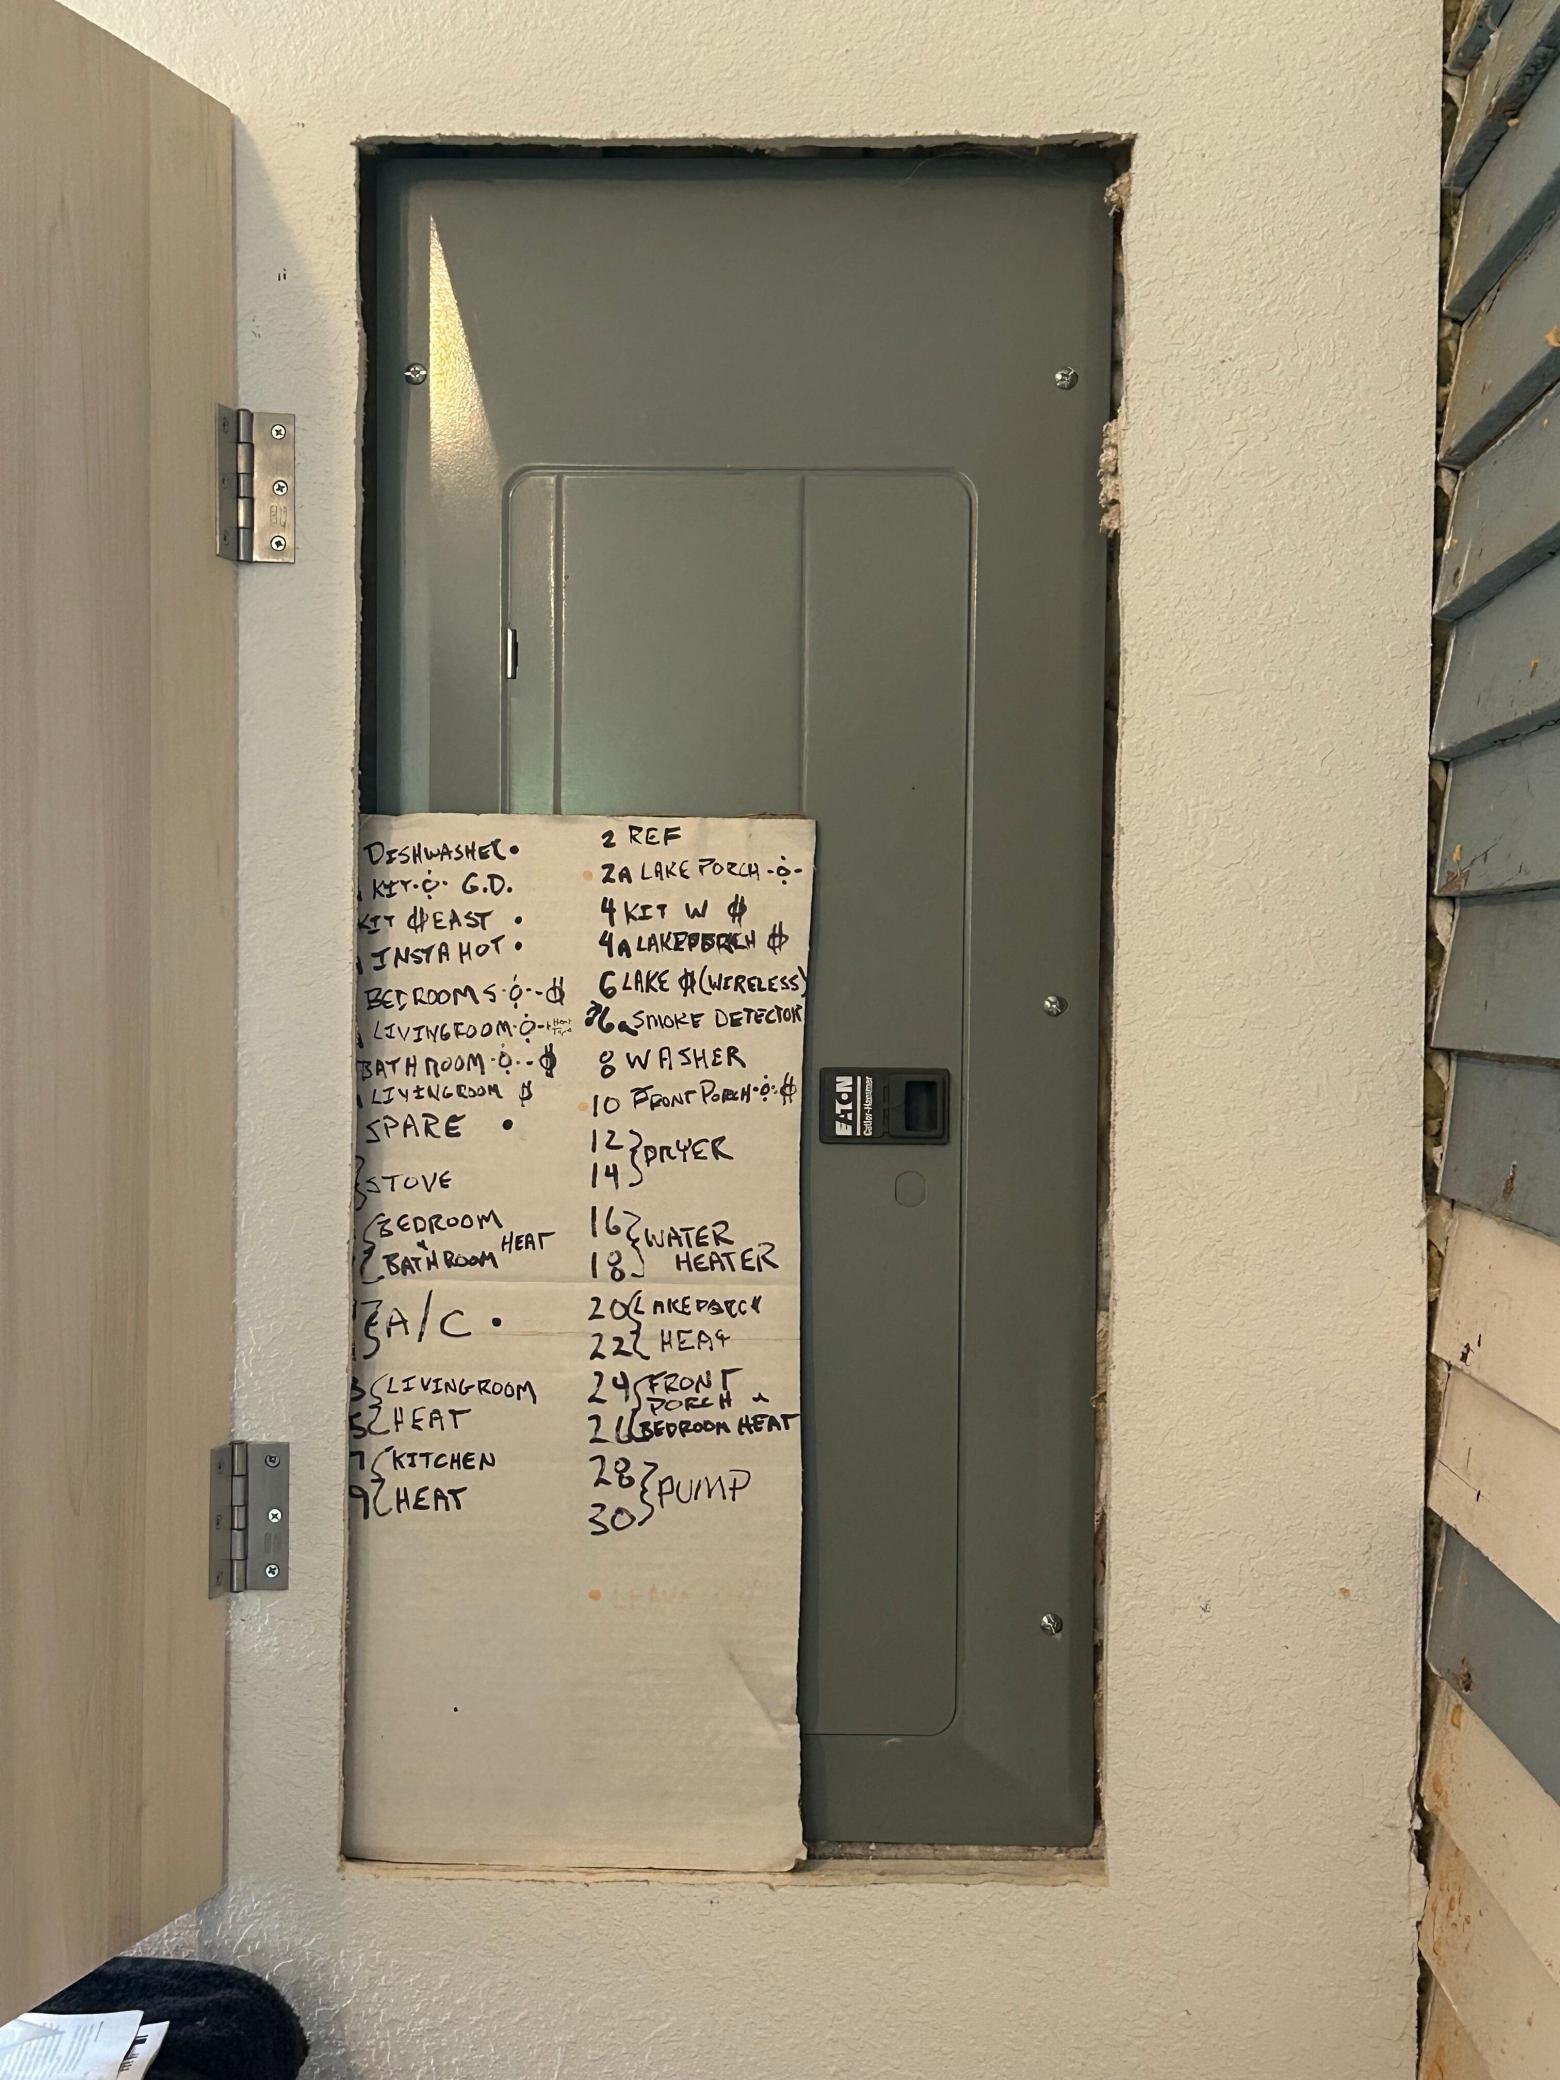 DISHWASHER
KIT G.D.
KIT EAST
INSTA HOT
BEDROOMS
LIVINGROOM
BATHROOM
LIVINGROOM
SPARE
STOVE
BEDROOM
& BATHROOM HEAT
A/C
LIVINGROOM
5 HEAT
7 KITCHEN
9 HEAT
2 REF
2A LAKE PORCH
4 KIT W
4A LAKEPORCH
6 LAKE (WIRELESS)
6a SMOKE DETECTOR
8 WASHER
10 FRONT PORCH
12 DRYER
14
16 WATER
18 HEATER
20 LAKEPORCH
22 HEAT
24 FRONT
PORCH &
26 BEDROOM HEAT
28 PUMP
30
LEAVE
EATON
Cutler-Hammer